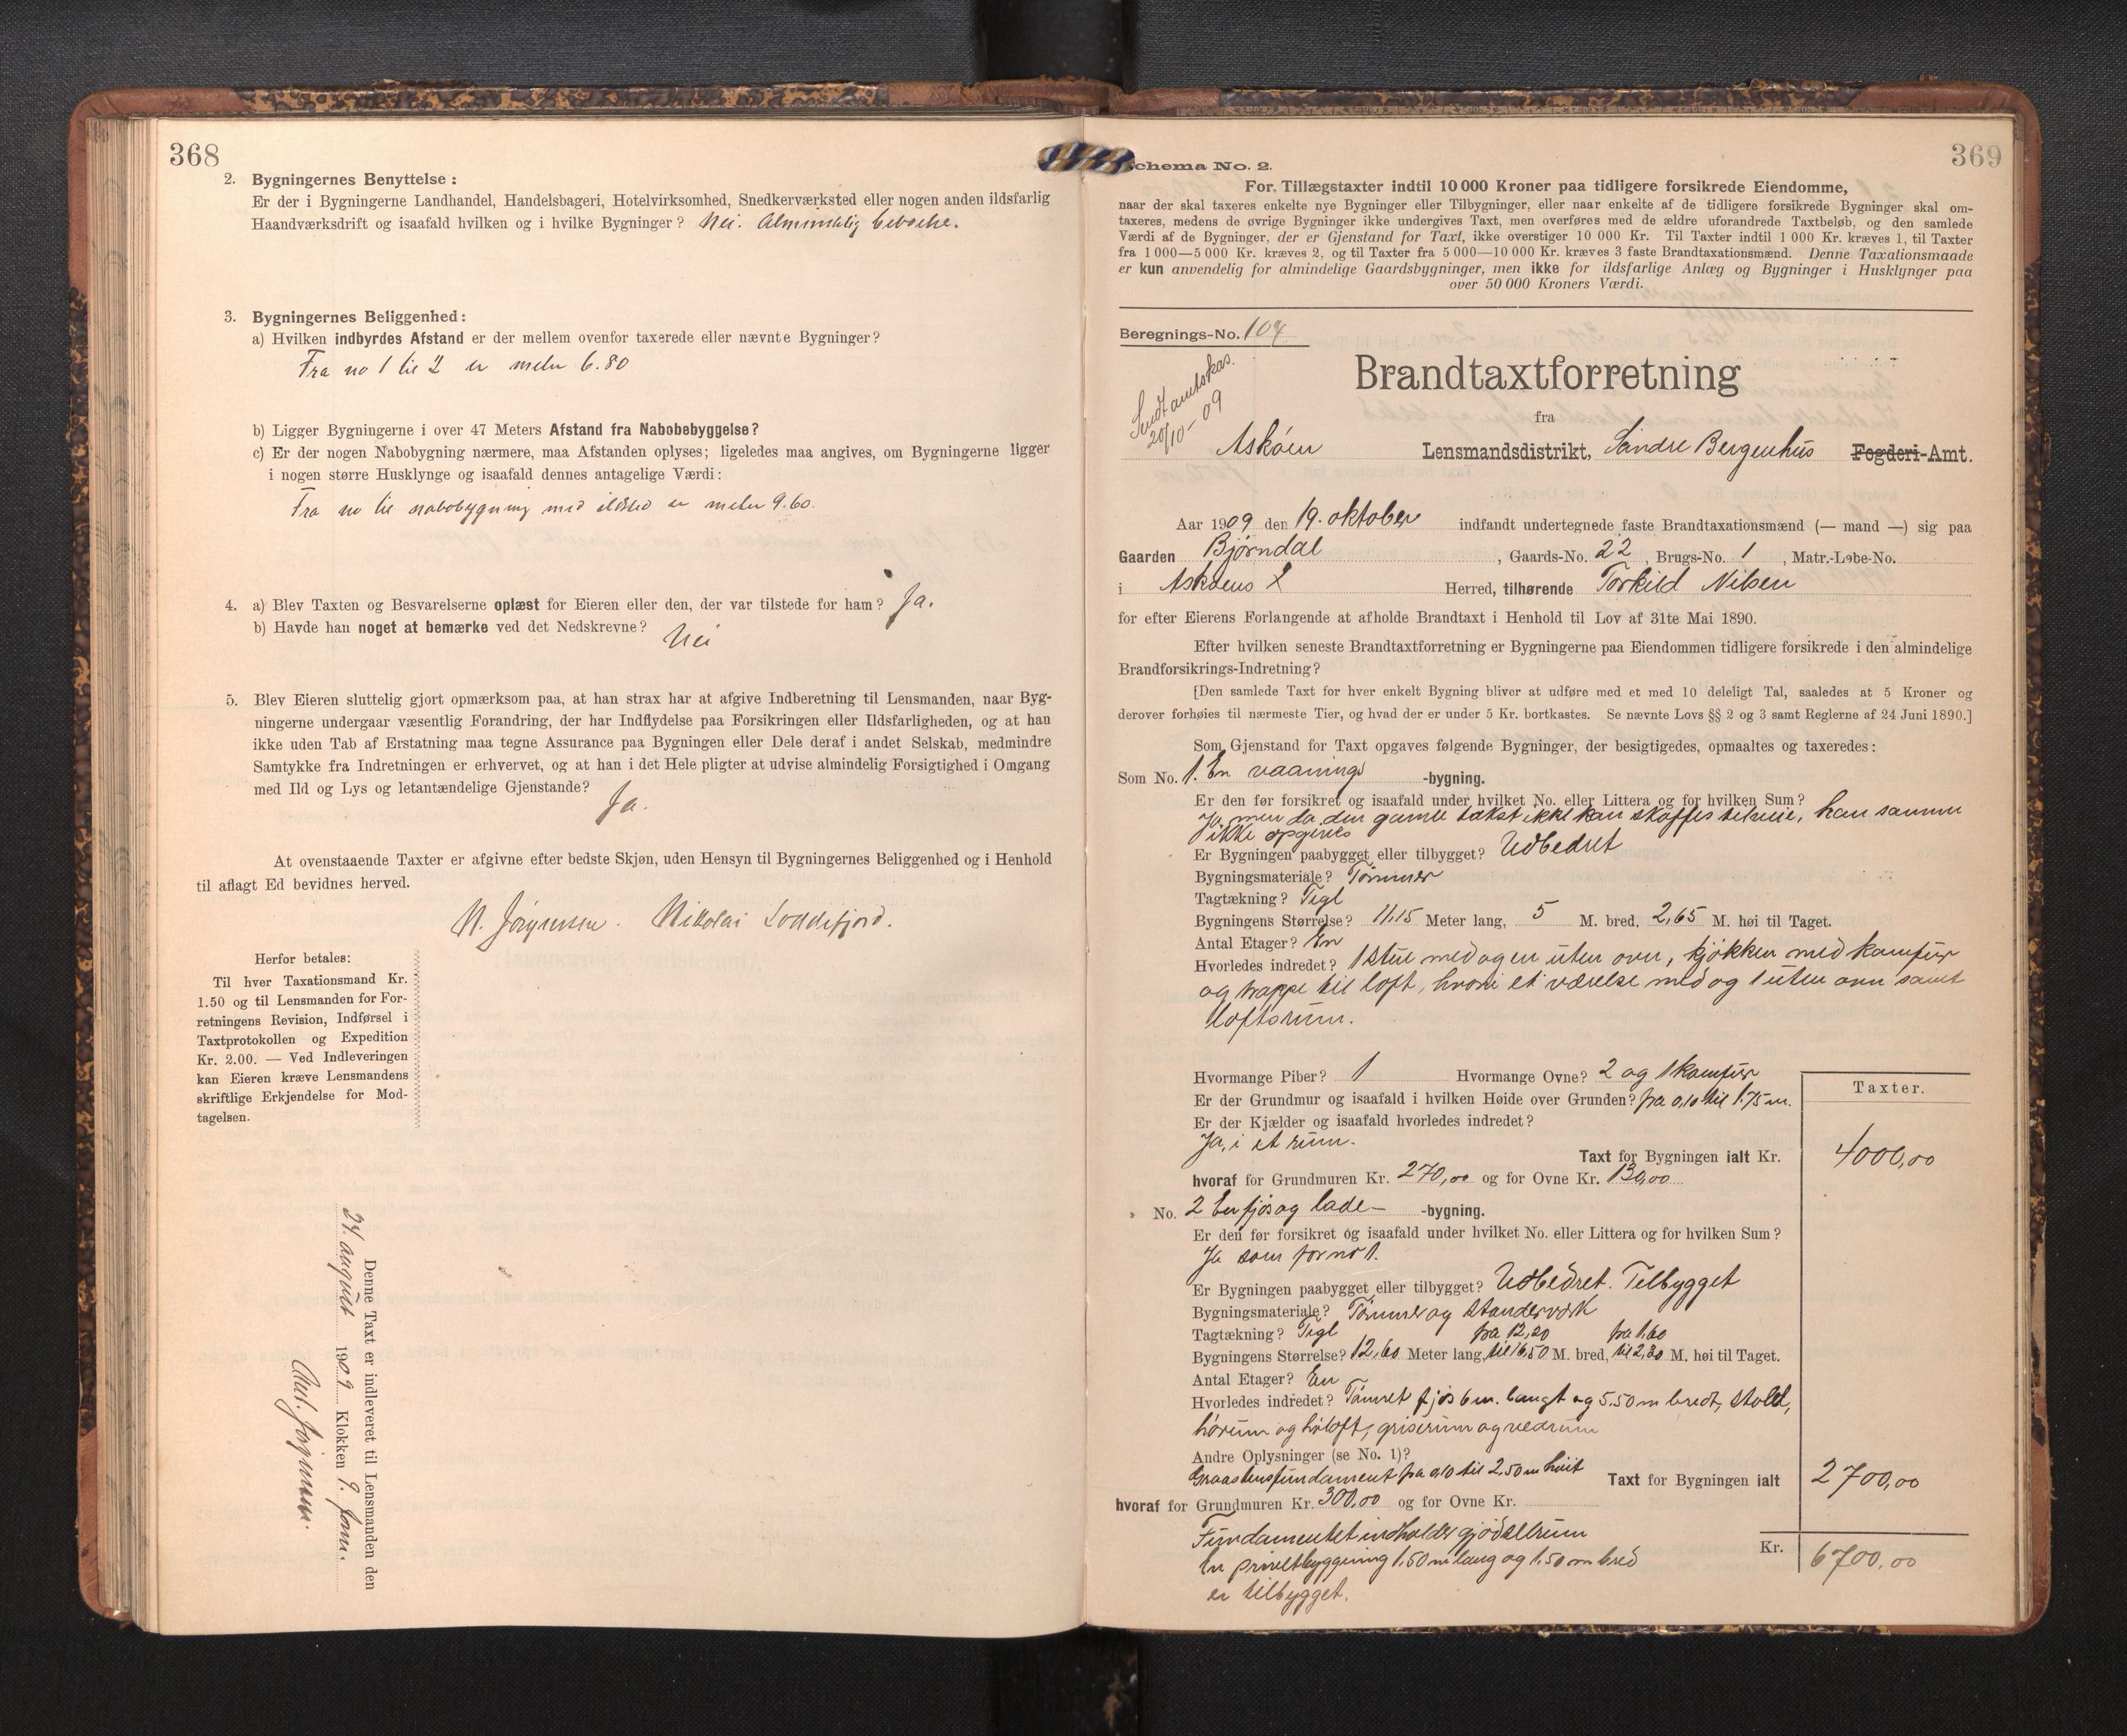 368
2. Bygningernes Benyttelse:
Er der i Bygningerne Landhandel, Handelsbageri, Hotelvirksomhed, Snedkerværksted eller nogen anden ildsfarlig
Haandværksdrift og isaafald hvilken og i hvilke Bygninger? Nei. Almindelig beboelse.
3. Bygningernes Beliggenhed:
a) Hvilken indbyrdes Afstand er der mellem ovenfor taxerede eller nævnte Bygninger?
Fra no 1 til 2 er meter 6.80
b) Ligger Bygningerne i over 47 Meters Afstand fra Nabobebyggelse?
c) Er der nogen Nabobygning nærmere, maa Afstanden oplyses; ligeledes maa angives, om Bygningerne ligger
i nogen større Husklynge og isaafald dennes antagelige Værdi:
Fra no til nabobygning med ildsted er meter 9.60.
4. a) Blev Taxten og Besvarelserne oplæst for Eieren eller den, der var tilstede for ham? Ja.
b) Havde han noget at bemærke ved det Nedskrevne? Nei
5. Blev Eieren sluttelig gjort opmærksom paa, at han strax har at afgive Indberetning til Lensmanden, naar Byg-
ningerne undergaar væsentlig Forandring, der har Indflydelse paa Forsikringen eller Ildsfarligheden, og at han
ikke uden Tab af Erstatning maa tegne Assurance paa Bygningen eller Dele deraf i andet Selskab, medmindre
Samtykke fra Indretningen er erhvervet, og at han i det Hele pligter at udvise almindelig Forsigtighed i Omgang
med Ild og Lys og letantændelige Gjenstande? Ja.
At ovenstaaende Taxter er afgivne efter bedste Skjøn, uden Hensyn til Bygningernes Beliggenhed og i Henhold
til aflagt Ed bevidnes herved.
N. Jörgensen. Nikolai Loddefjord.
Herfor betales:
Til hver Taxationsmand Kr.
1.50 og til Lensmanden for For-
retningens Revision, Indførsel i
Taxtprotokollen og Expedition
Kr. 2.00. — Ved Indleveringen
kan Eieren kræve Lensmandens
skriftlige Erkjendelse for Mod-
tagelsen.
Denne Taxt er indleveret til Lensmanden den
24. august 1909 Klokken 9. form.
369
Schema No. 2.
For Tillægstaxter indtil 10 000 Kroner paa tidligere forsikrede Eiendomme,
naar der skal taxeres enkelte nye Bygninger eller Tilbygninger, eller naar enkelte af de tidligere forsikrede Bygninger skal om-
taxeres, medens de øvrige Bygninger ikke undergives Taxt, men overføres med de ældre uforandrede Taxtbeløb, og den samlede
Værdi af de Bygninger, der er Gjenstand for Taxt, ikke overstiger 10 000 Kr. Til Taxter indtil 1 000 Kr. kræves 1, til Taxter
fra 1 000—5 000 Kr. kræves 2, og til Taxter fra 5 000—10 000 Kr. kræves 3 faste Brandtaxationsmænd. Denne Taxationsmaade
er kun anvendelig for almindelige Gaardsbygninger, men ikke for ildsfarlige Anlæg og Bygninger i Husklynger paa
over 50 000 Kroners Værdi.
Beregnings-No. 104
Sendt amtskas.
20/10-09
Brandtaxtforretning
fra
Askøen Lensmandsdistrikt, Söndre Bergenhus Fogderi-Amt.
Aar 1909 den 19. oktober indfandt undertegnede faste Brandtaxationsmænd (— mand —) sig paa
Gaarden Bjørndal, Gaards-No. 22, Brugs-No. 1, Matr.-Løbe-No.
i Askøens L Herred, tilhørende Torkild Nilsen
for efter Eierens Forlangende at afholde Brandtaxt i Henhold til Lov af 31te Mai 1890.
Efter hvilken seneste Brandtaxtforretning er Bygningerne paa Eiendommen tidligere forsikrede i den almindelige
Brandforsikrings-Indretning?
[Den samlede Taxt for hver enkelt Bygning bliver at udføre med et med 10 deleligt Tal, saaledes at 5 Kroner og
derover forhøies til nærmeste Tier, og hvad der er under 5 Kr. bortkastes. Se nævnte Lovs §§ 2 og 3 samt Reglerne af 24 Juni 1890.]
Som Gjenstand for Taxt opgaves følgende Bygninger, der besigtigedes, opmaaltes og taxeredes:
Som No. 1. En vaanings -bygning.
Er den før forsikret og isaafald under hvilket No. eller Littera og for hvilken Sum?
Ja, men da den gamle takst ikke kan skaffes tilveie, kan samme
ikke opgives
Er Bygningen paabygget eller tilbygget? Udbedret
Bygningsmateriale? Tömmer
Tagtækning? Tegl
Bygningens Størrelse? 11,15 Meter lang, 5 M. bred, 2,65 M. høi til Taget.
Antal Etager? En
Hvorledes indredet? 1 stue med og en uten ovn, kjøkken med komfur
og trappe til loft, hvori et værelse med og 1 uten ovn samt
loftsrum.
Hvormange Piber? 1 Hvormange Ovne? 2 og 1 komfur
Er der Grundmur og isaafald i hvilken Høide over Grunden? fra 0,10 til 1.75 m.
Er der Kjælder og isaafald hvorledes indredet?
Ja, i et rum.
Taxter.
Taxt for Bygningen ialt Kr. 4000,00
hvoraf for Grundmuren Kr. 270,00 og for Ovne Kr. 130,00
No. 2 En fjøs og lade- -bygning.
Er den før forsikret og isaafald under hvilket No. eller Littera og for hvilken Sum?
Ja som for no 1.
Er Bygningen paabygget eller tilbygget? Udbedret. Tilbygget
Bygningsmateriale? Tömmer og standerverk
Tagtækning? Tegl fra 12,20 fra 1,60
Bygningens Størrelse? 12,60 Meter lang, til 16,50 M. bred, til 2,30 M. høi til Taget.
Antal Etager? En
Hvorledes indredet? Tömret fjøs 6 m. langt og 5.50 m bredt, stald,
hörum og höloft, griserum og vedrum
Andre Oplysninger (se No. 1)?
Graastensfundament fra 0,10 til 2,50 m høit Taxt for Bygningen ialt 2700,00
hvoraf for Grundmuren Kr. 300,00 og for Ovne Kr.
Fundamentet indholder gjødselrum
En privetbyggning 1,50 m lang og 1,50 m bred
er tilbygget.
Kr. 6700,00